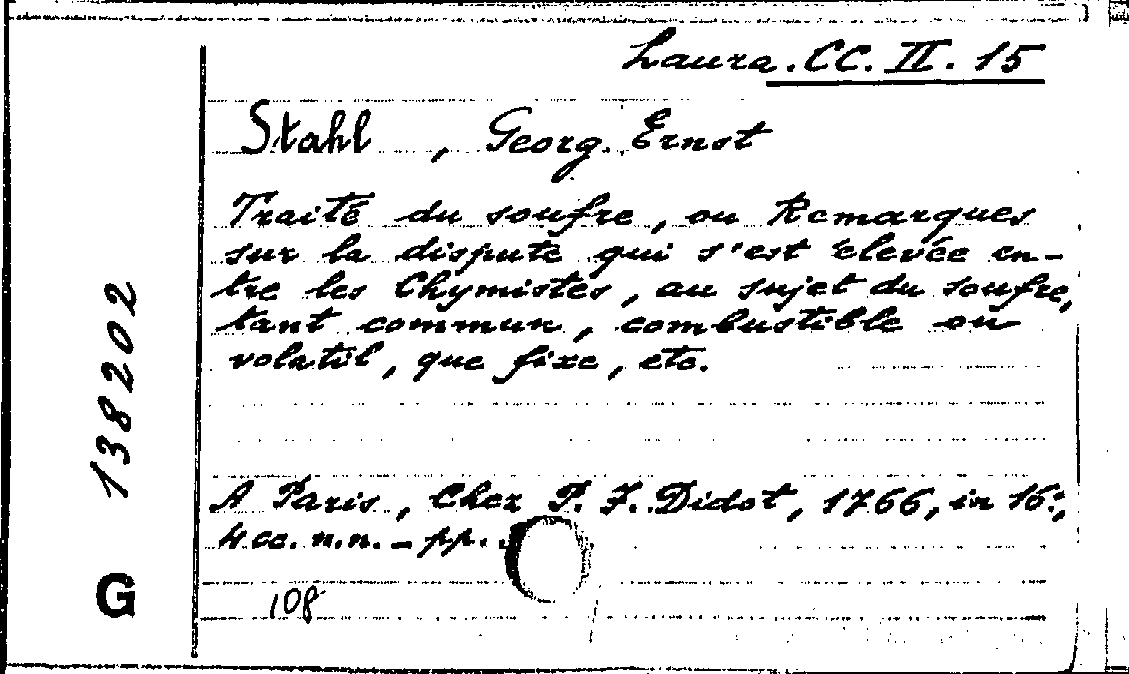 Laura. CC. II. 15
Stahl , Georg Ernst
Traité du soufre, ou Remarques
sur la dispute qui s'est élevée en-
tre les Chymistes, au sujet du soufre,
tant commun, combustible ou
volatil, que fixe, etc.
A Paris, Chez P. F. Didot, 1766, in 16º,
4 cc. n.n. - pp.
108
G 138202